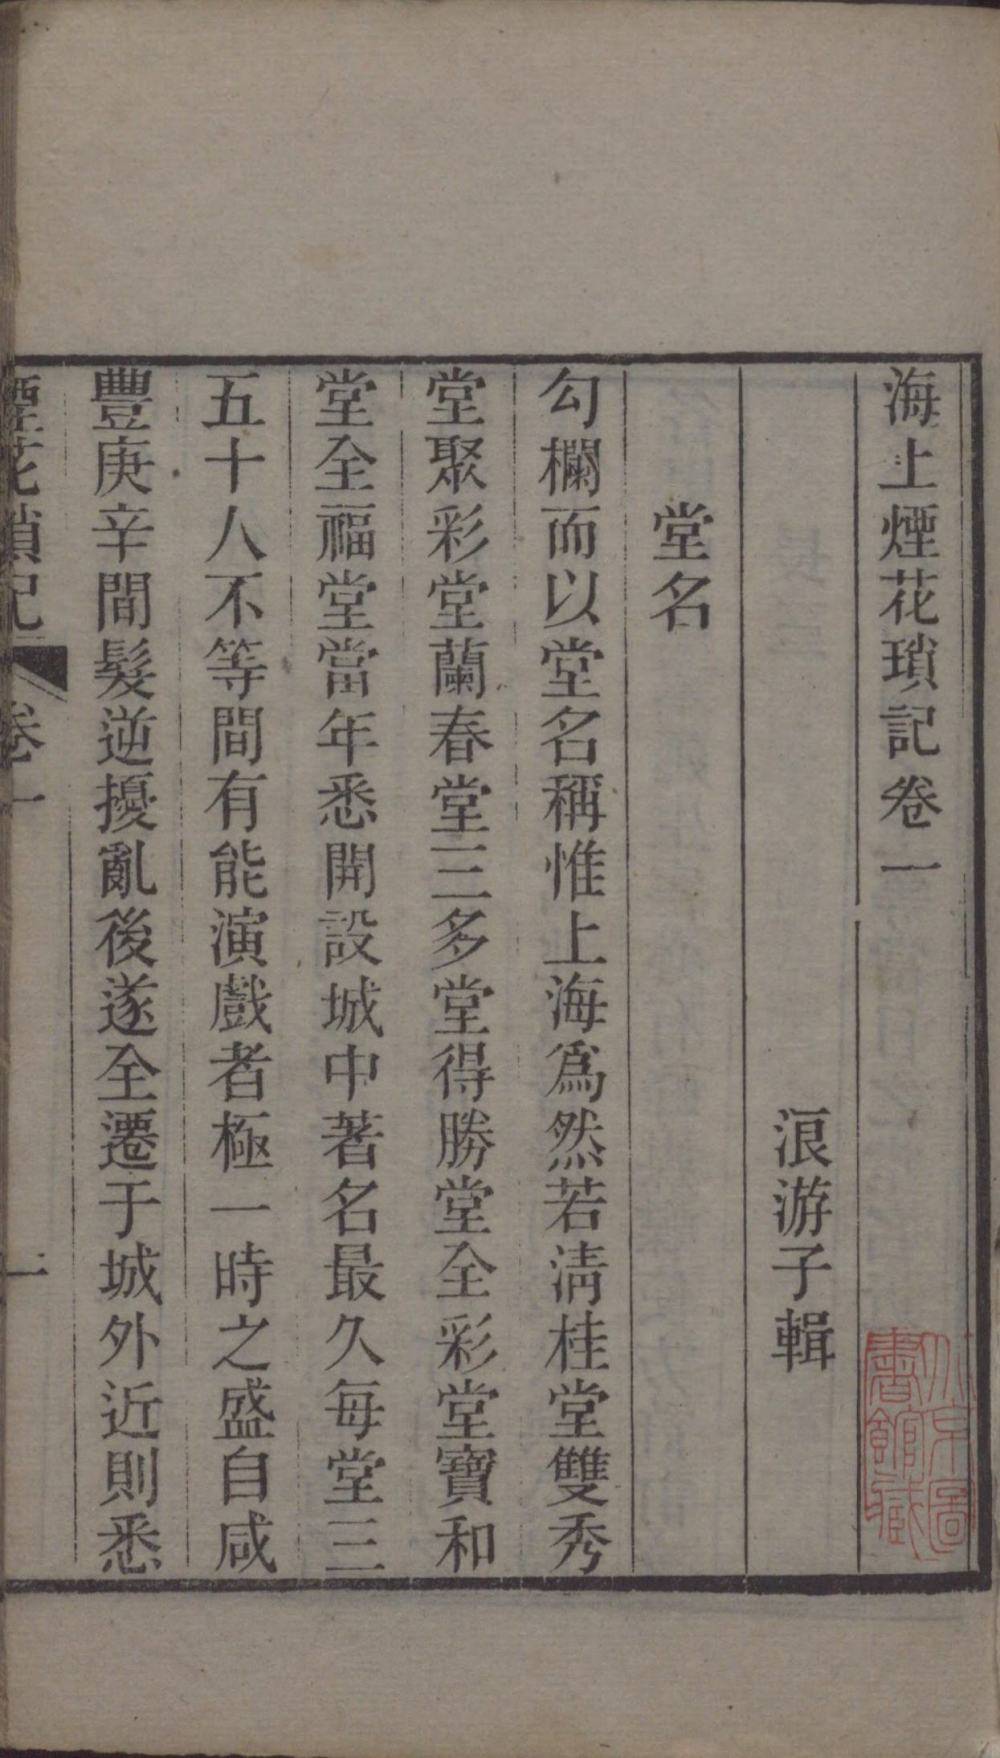 海上煙花瑣記卷一
浪游子輯
堂名
勾欄而以堂名稱惟上海爲然若清桂堂雙秀
堂聚彩堂蘭春堂三多堂得勝堂全彩堂寶和
堂全福堂當年悉開設城中著名最久每堂三
五十人不等間有能演戲者極一時之盛自咸
豐庚辛間髮逆擾亂後遂全遷于城外近則悉
煙花瑣記
卷一
一
北京圖書館藏